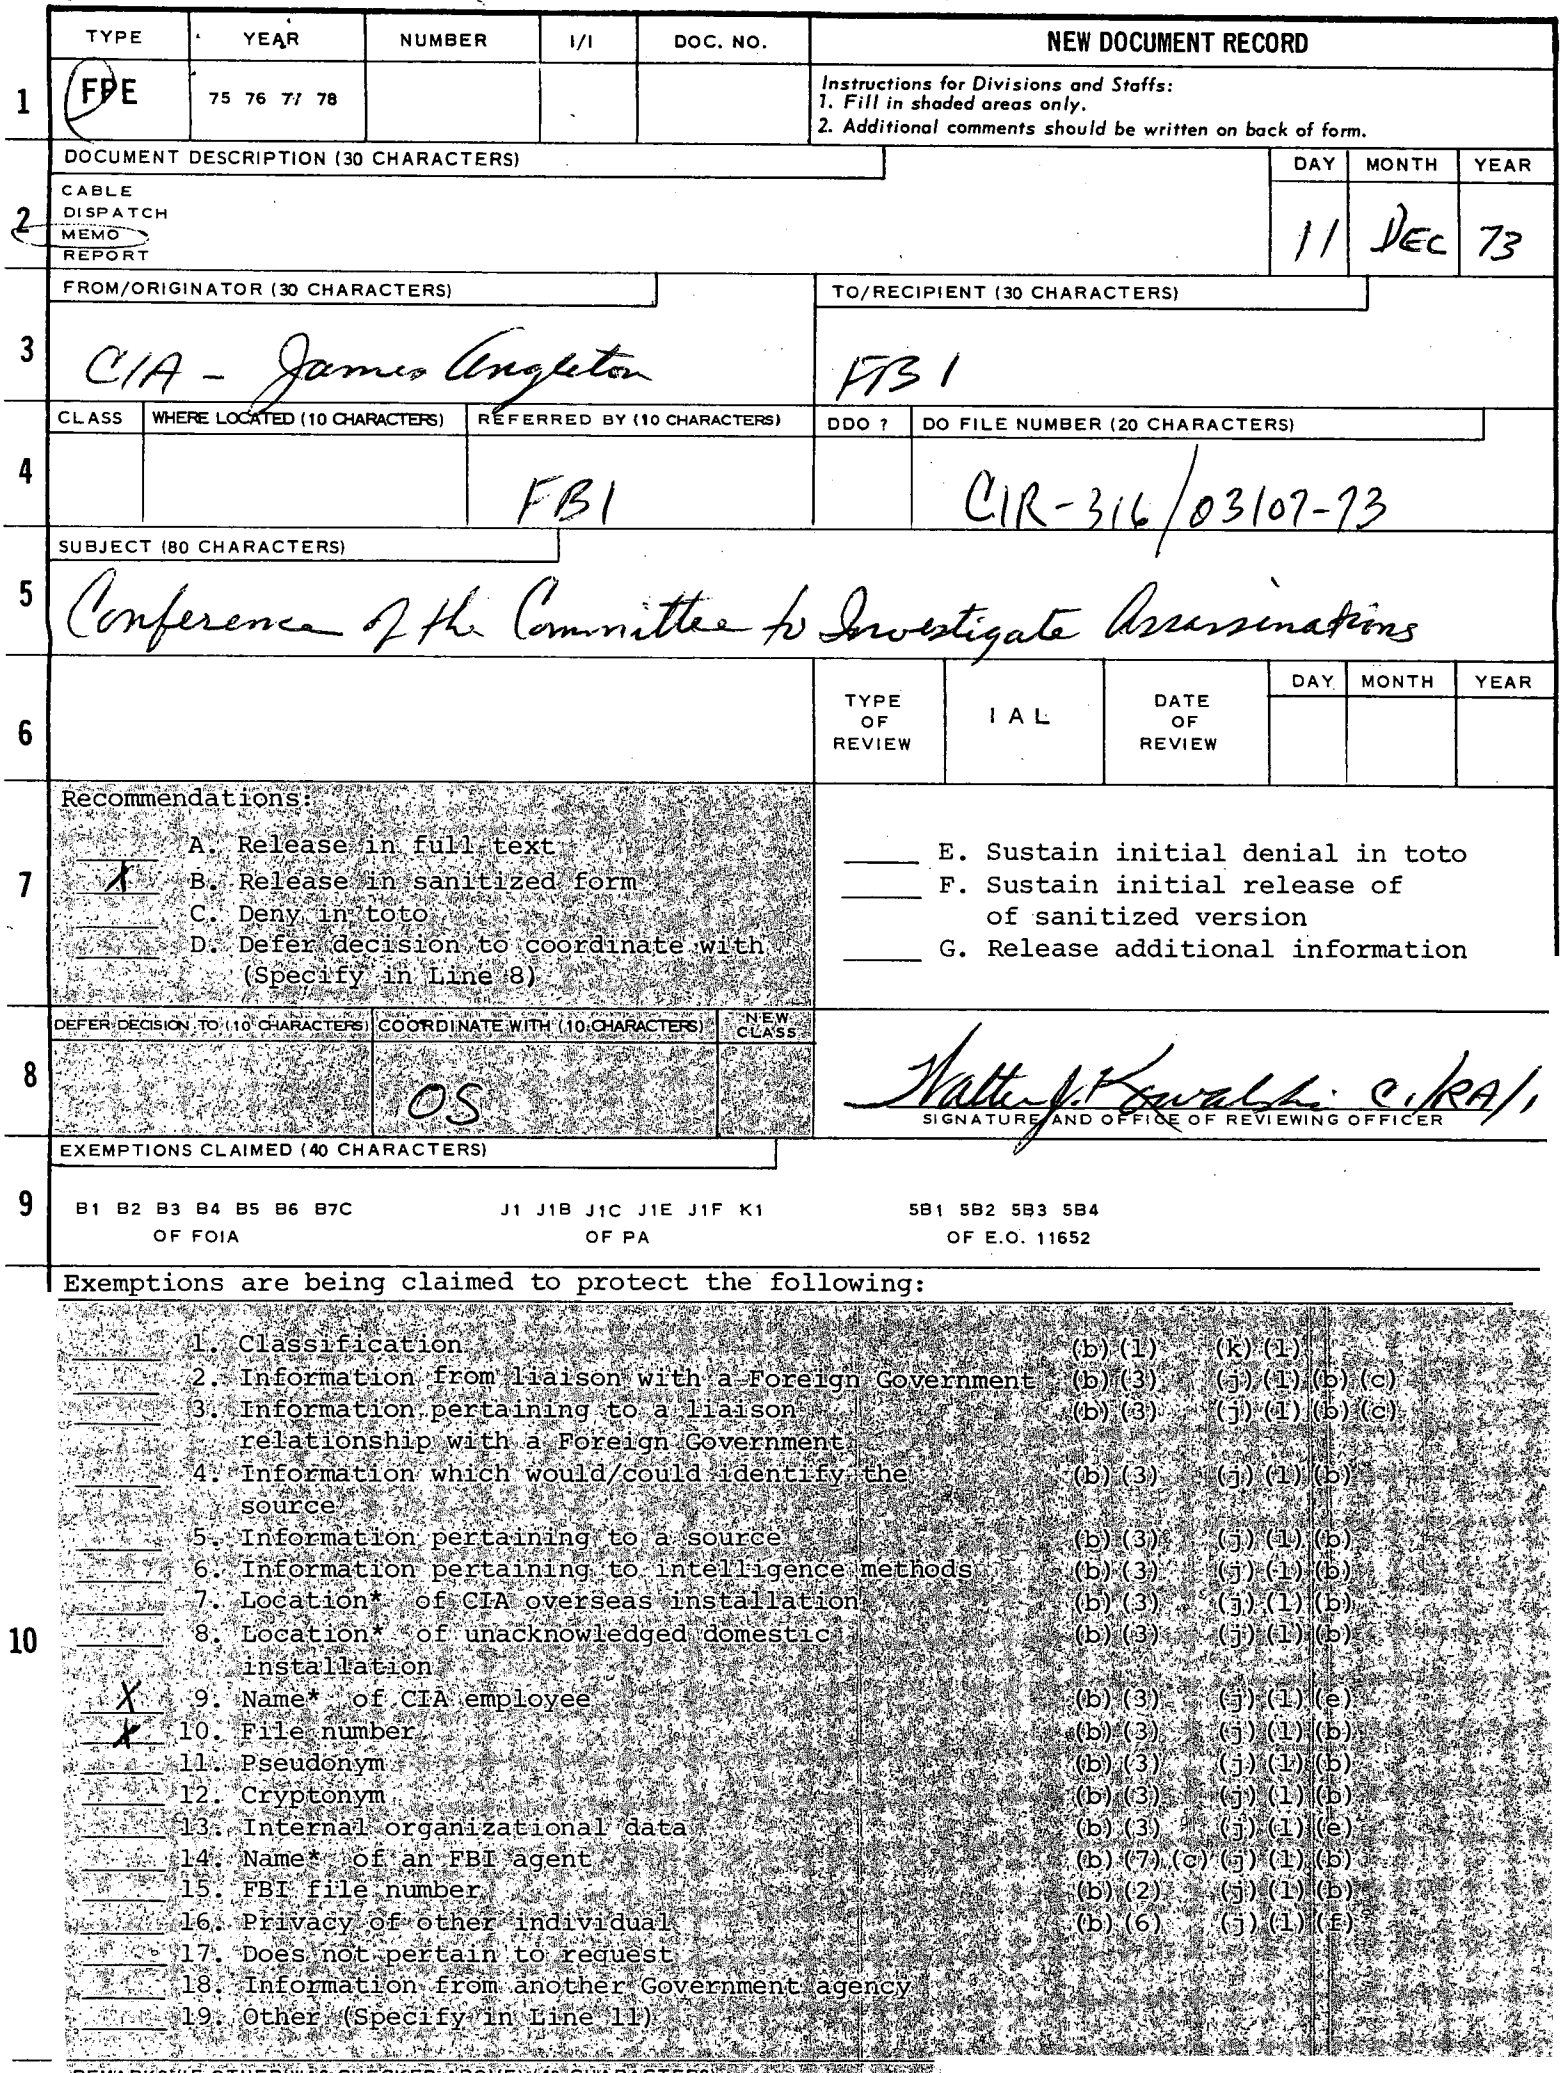 TYPE YEAR NUMBER 1/1 DOC. NO. NEW DOCUMENT RECORD
1 FPE 75 76 77 78
Instructions for Divisions and Staffs:
1. Fill in shaded areas only.
2. Additional comments should be written on back of form.
DOCUMENT DESCRIPTION (30 CHARACTERS) DAY MONTH YEAR
2 CABLE
DISPATCH
MEMO
REPORT
11 DEC 73
FROM/ORIGINATOR (30 CHARACTERS) TO/RECIPIENT (30 CHARACTERS)
3 CIA - James Angleton FBI
CLASS WHERE LOCATED (10 CHARACTERS) REFERRED BY (10 CHARACTERS) DDO ? DO FILE NUMBER (20 CHARACTERS)
4 FBI CIR-316/03107-73
SUBJECT (80 CHARACTERS)
5 Conference of the Committee to Investigate Assassinations
6 TYPE OF REVIEW I A L DATE OF REVIEW DAY MONTH YEAR
7 Recommendations:
A. Release in full text
X B. Release in sanitized form
C. Deny in toto
D. Defer decision to coordinate with
(Specify in Line 8)
E. Sustain initial denial in toto
F. Sustain initial release of
of sanitized version
G. Release additional information
DEFER DECISION TO (10 CHARACTERS) COORDINATE WITH (10 CHARACTERS) NEW CLASS
8 OS
Walter J. Kowalski C,/RA/1
SIGNATURE AND OFFICE OF REVIEWING OFFICER
EXEMPTIONS CLAIMED (40 CHARACTERS)
9 B1 B2 B3 B4 B5 B6 B7C J1 J1B J1C J1E J1F K1 5B1 5B2 5B3 5B4
OF FOIA OF PA OF E.O. 11652
Exemptions are being claimed to protect the following:
10
1. Classification (b)(1) (k)(1)
2. Information from liaison with a Foreign Government (b)(3) (j)(1)(b)(c)
3. Information pertaining to a liaison (b)(3) (j)(1)(b)(c)
relationship with a Foreign Government
4. Information which would/could identify the (b)(3) (j)(1)(b)
source
5. Information pertaining to a source (b)(3) (j)(1)(b)
6. Information pertaining to intelligence methods (b)(3) (j)(1)(b)
7. Location* of CIA overseas installation (b)(3) (j)(1)(b)
8. Location* of unacknowledged domestic (b)(3) (j)(1)(b)
installation
X 9. Name* of CIA employee (b)(3) (j)(1)(e)
X 10. File number (b)(3) (j)(1)(b)
11. Pseudonym (b)(3) (j)(1)(b)
12. Cryptonym (b)(3) (j)(1)(b)
13. Internal organizational data (b)(3) (j)(1)(e)
14. Name* of an FBI agent (b)(7)(c) (j)(1)(b)
15. FBI file number (b)(2) (j)(1)(b)
16. Privacy of other individual (b)(6) (j)(1)(f)
17. Does not pertain to request
18. Information from another Government agency
19. Other (Specify in Line 11)